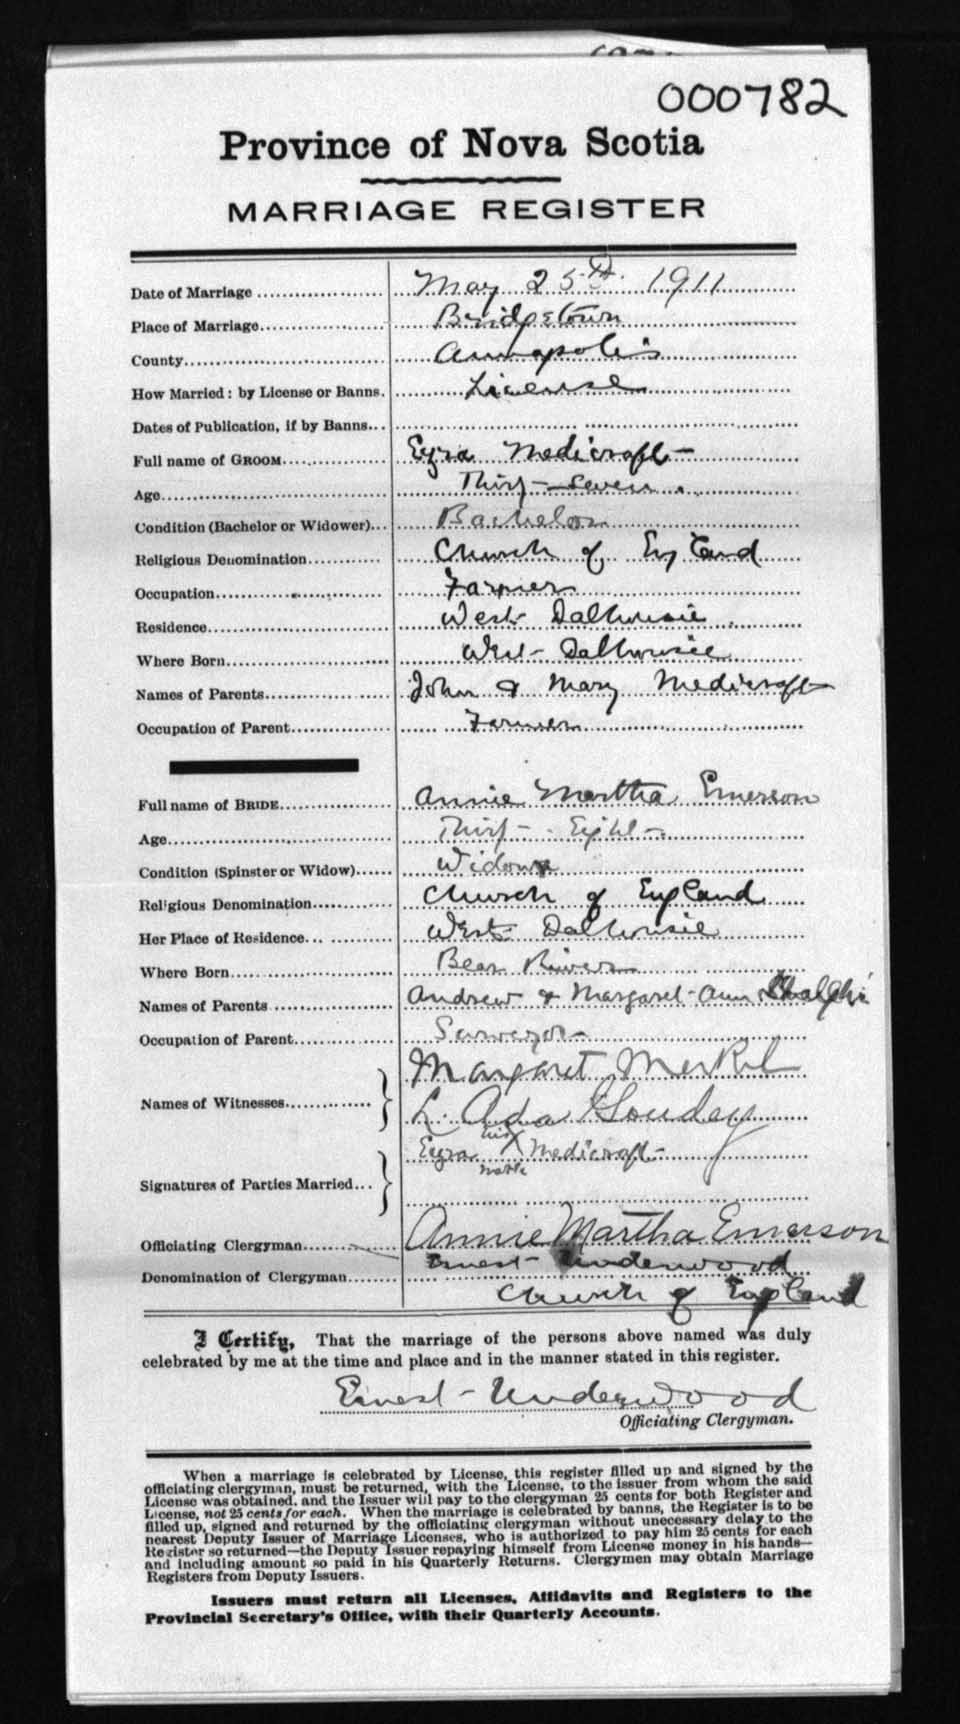 000782
Province of Nova Scotia
MARRIAGE REGISTER
Date of Marriage May 25th 1911
Place of Marriage Bridgetown
County Annapolis
How Married: by License or Banns. License
Dates of Publication, if by Banns
Full name of GROOM Ezra Medicraft
Age Thirty-Seven
Condition (Bachelor or Widower) Bachelor
Religious Denomination Church of England
Occupation Farmer
Residence West Dalhousie
Where Born West Dalhousie
Names of Parents John & Mary Medicraft
Occupation of Parent Farmer
Full name of BRIDE Annie Martha Emerson
Age Thirty-Eight
Condition (Spinster or Widow) Widow
Religious Denomination Church of England
Her Place of Residence West Dalhousie
Where Born Bear River
Names of Parents Andrew & Margaret Ann
Occupation of Parent Surveyor
Names of Witnesses Margaret Merkel
L. Ada Goudey
Signatures of Parties Married Ezra his X mark Medicraft
Annie Martha Emerson
Officiating Clergyman Ernest Underwood
Denomination of Clergyman Church of England
I Certify, That the marriage of the persons above named was duly
celebrated by me at the time and place and in the manner stated in this register.
Ernest Underwood
Officiating Clergyman.
When a marriage is celebrated by License, this register filled up and signed by the
officiating clergyman, must be returned, with the License, to the issuer from whom the said
License was obtained, and the Issuer will pay to the clergyman 25 cents for both Register and
License, not 25 cents for each. When the marriage is celebrated by banns, the Register is to be
filled up, signed and returned by the officiating clergyman without unecessary delay to the
nearest Deputy Issuer of Marriage Licenses, who is authorized to pay him 25 cents for each
Register so returned—the Deputy Issuer repaying himself from License money in his hands—
and including amount so paid in his Quarterly Returns. Clergymen may obtain Marriage
Registers from Deputy Issuers.
Issuers must return all Licenses, Affidavits and Registers to the
Provincial Secretary's Office, with their Quarterly Accounts.